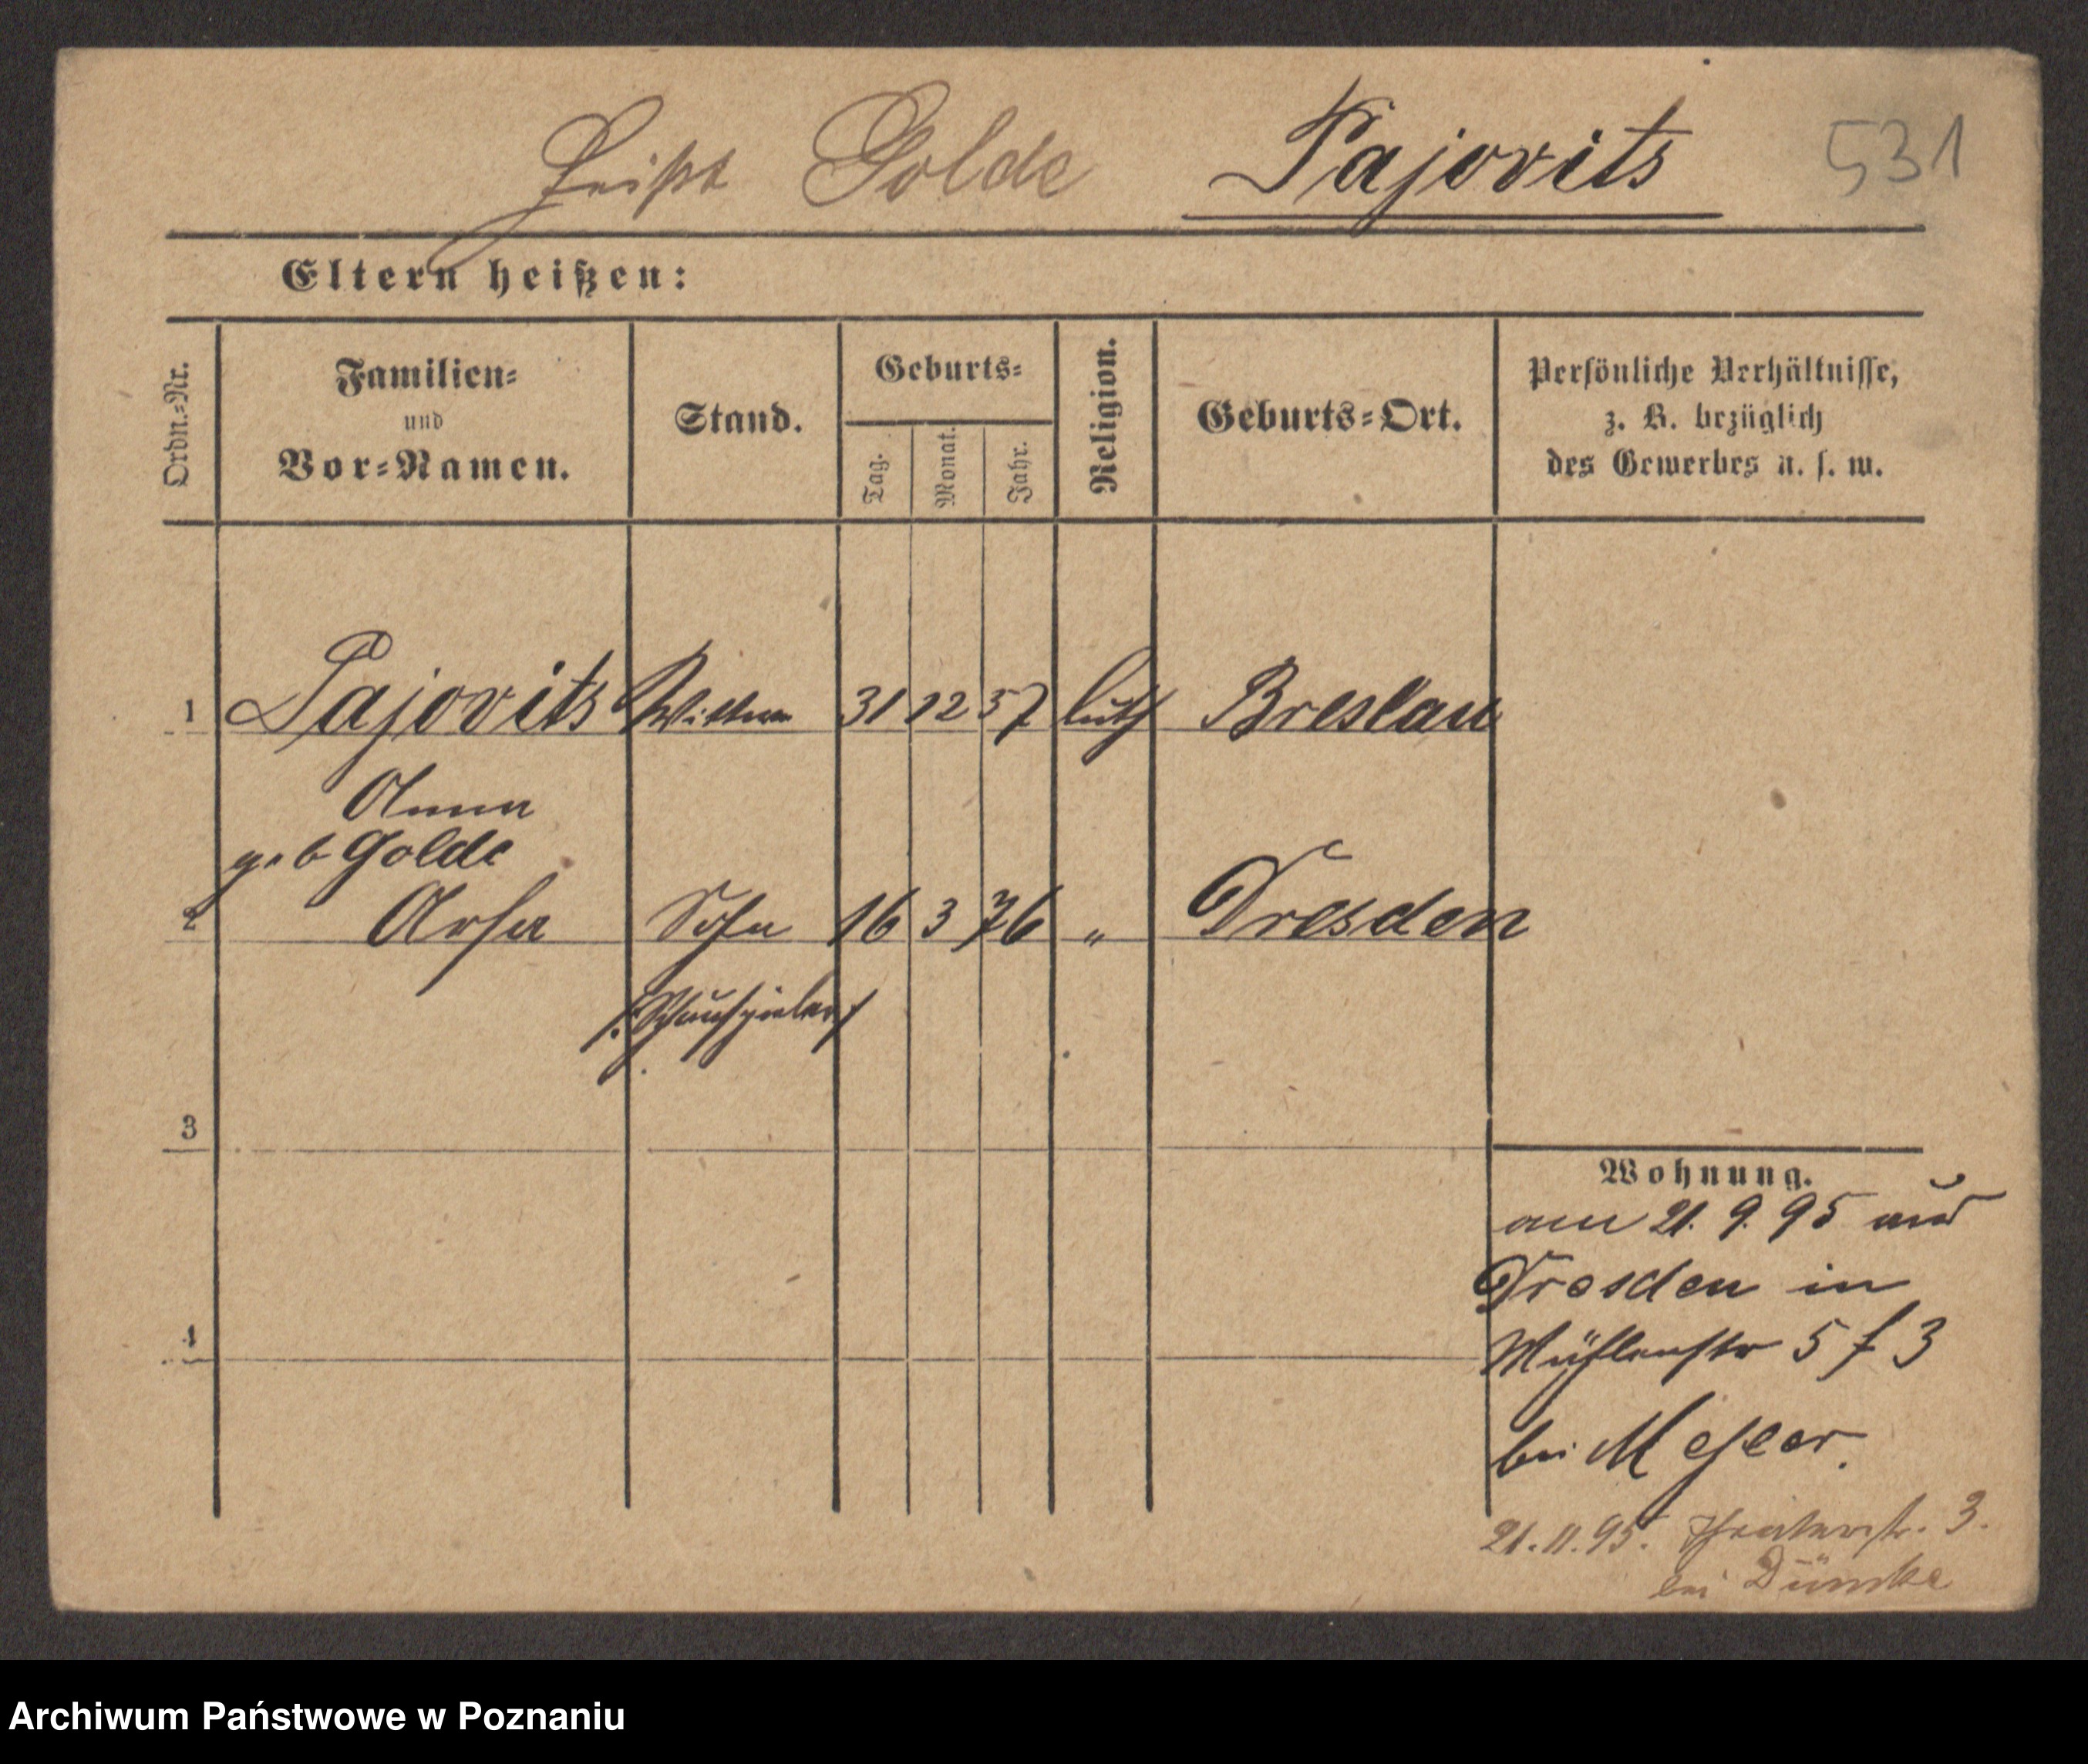 heißt Golde Pajovits 531
Eltern heißen:
Ordn.=Nr.
Familien=
und
Vor=Namen.
Stand.
Geburts=
Tag.
Monat.
Jahr.
Religion.
Geburts=Ort.
Persönliche Verhältnisse,
z. B. bezüglich
des Gewerbes u. s. w.
1 Pajovits Wittwe 31 12 57 luth Breslau
Anna
geb Golde
2 Sohn 16 3 76 " Dresden
/: Schauspieler /
3
Wohnung.
am 21. 9. 95 aus
Dresden in
4
Mühlenstr 5 f 3
bei
21. 11. 95. Theaterstr. 3.
bei Dümke
Archiwum Państwowe w Poznaniu